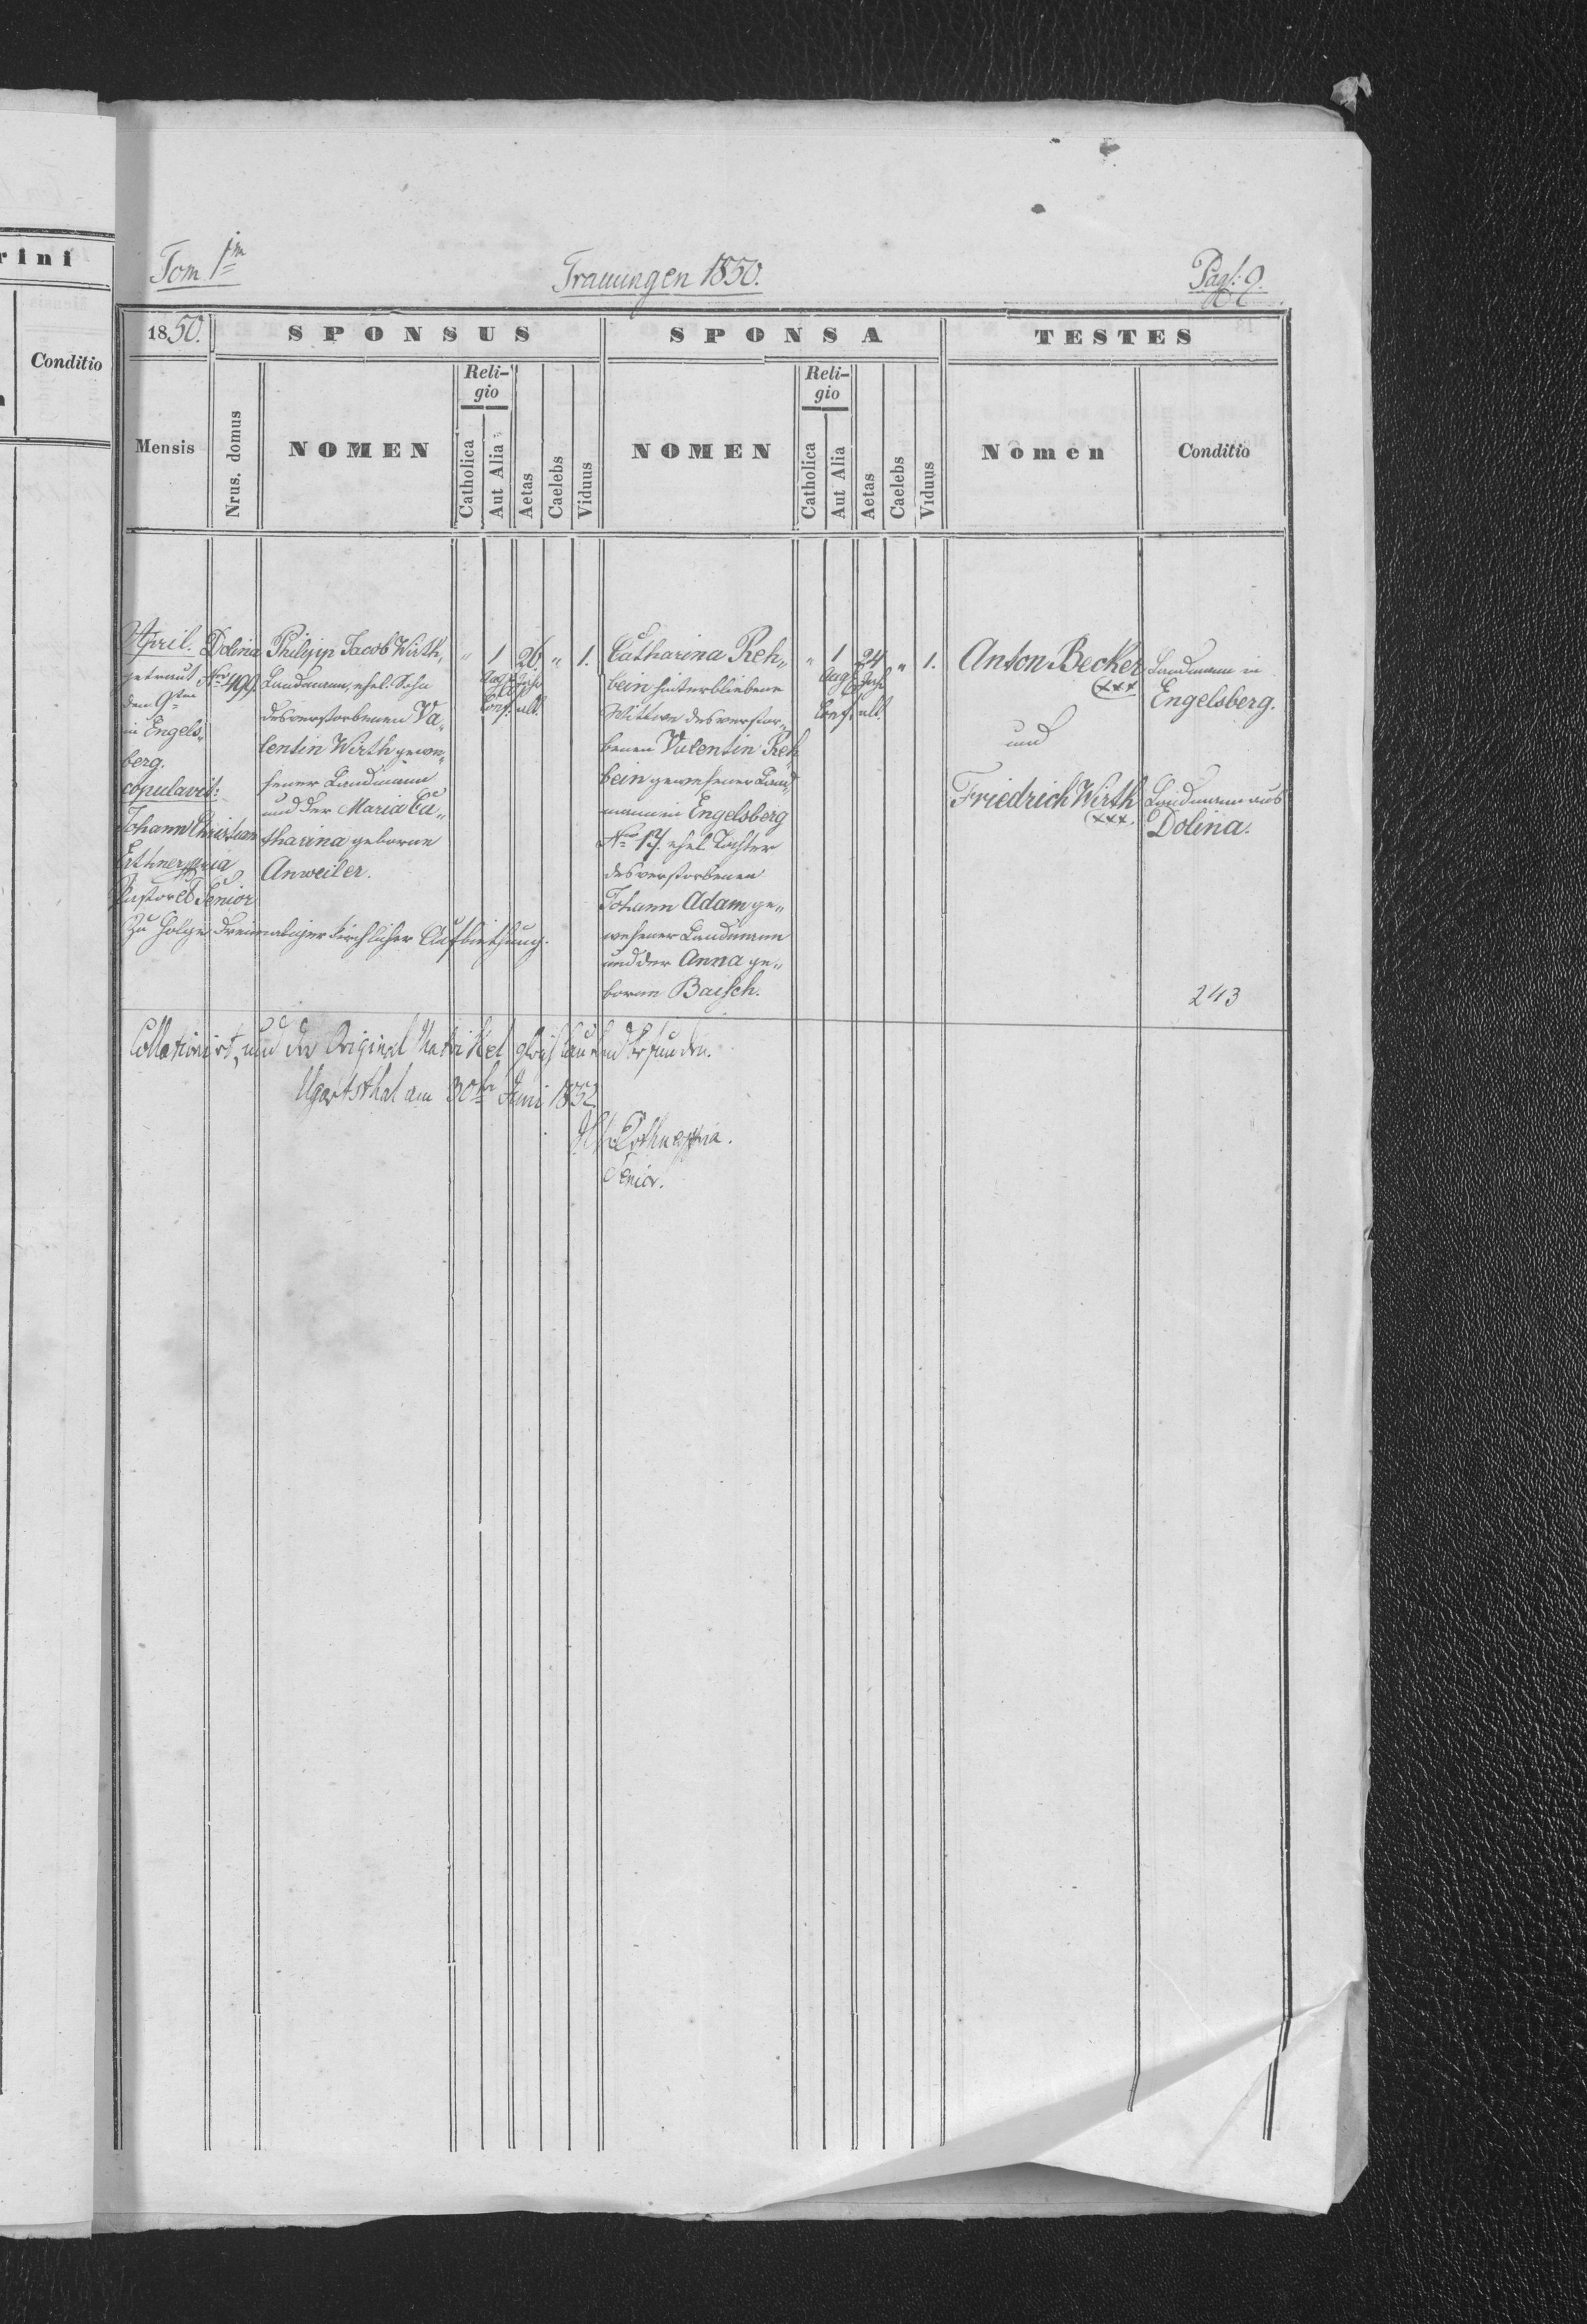 rini
Conditio
Tom. 1m
Trauungen 1850.
Pag: 9.
1850.
SPONSUS
SPONSA
TESTES
Mensis
Nrus. domus
NOMEN
Reli-
gio
Catholica
Aut Alia
Aetas
Caelebs
Viduus
NOMEN
Reli-
gio
Catholica
Aut Alia
Aetas
Caelebs
Viduus
Nomen
Conditio
April.
getraut
den 9ten
in Engels„
berg.
copulavit:
Johann Christian
Erthner mpria
Pastor et Senior
Zu Folge dreimaliger kirchlicher Aufbiethung.
Dolina
Nro 199
Philipp Jacob Wirth,
Landmann, ehel. Sohn
des verstorbenen Va„
lentin Wirth gewe„
sener Landmann
und der Maria Ca„
tharina geborene
Anweiler.
„ 1 26 „ 1.
Augs. Jahr
Conf. alt.
Catharina Reh„
bein hinterbliebene
Wittwe des verstor„
benen Valentin Reh„
bein gewesener Land„
mann in Engelsberg
Nro 17. ehel. Tochter
des verstorbenen
Johann Adam ge„
wesener Landmann
und der Anna ge„
borene Baisch.
„ 1 24 „ 1.
Augs. Jahr
Conf. alt.
Anton Becker
(xxx)
und
Friedrich Wirth
(xxx)
Landmann in
Engelsberg.
Landmann aus
Dolina.
243
Collationirt, und der Original Matrikel gleichlautend befunden.
Ugartsthal am 30ten Juni 1852
Erthner mpria.
Senior.